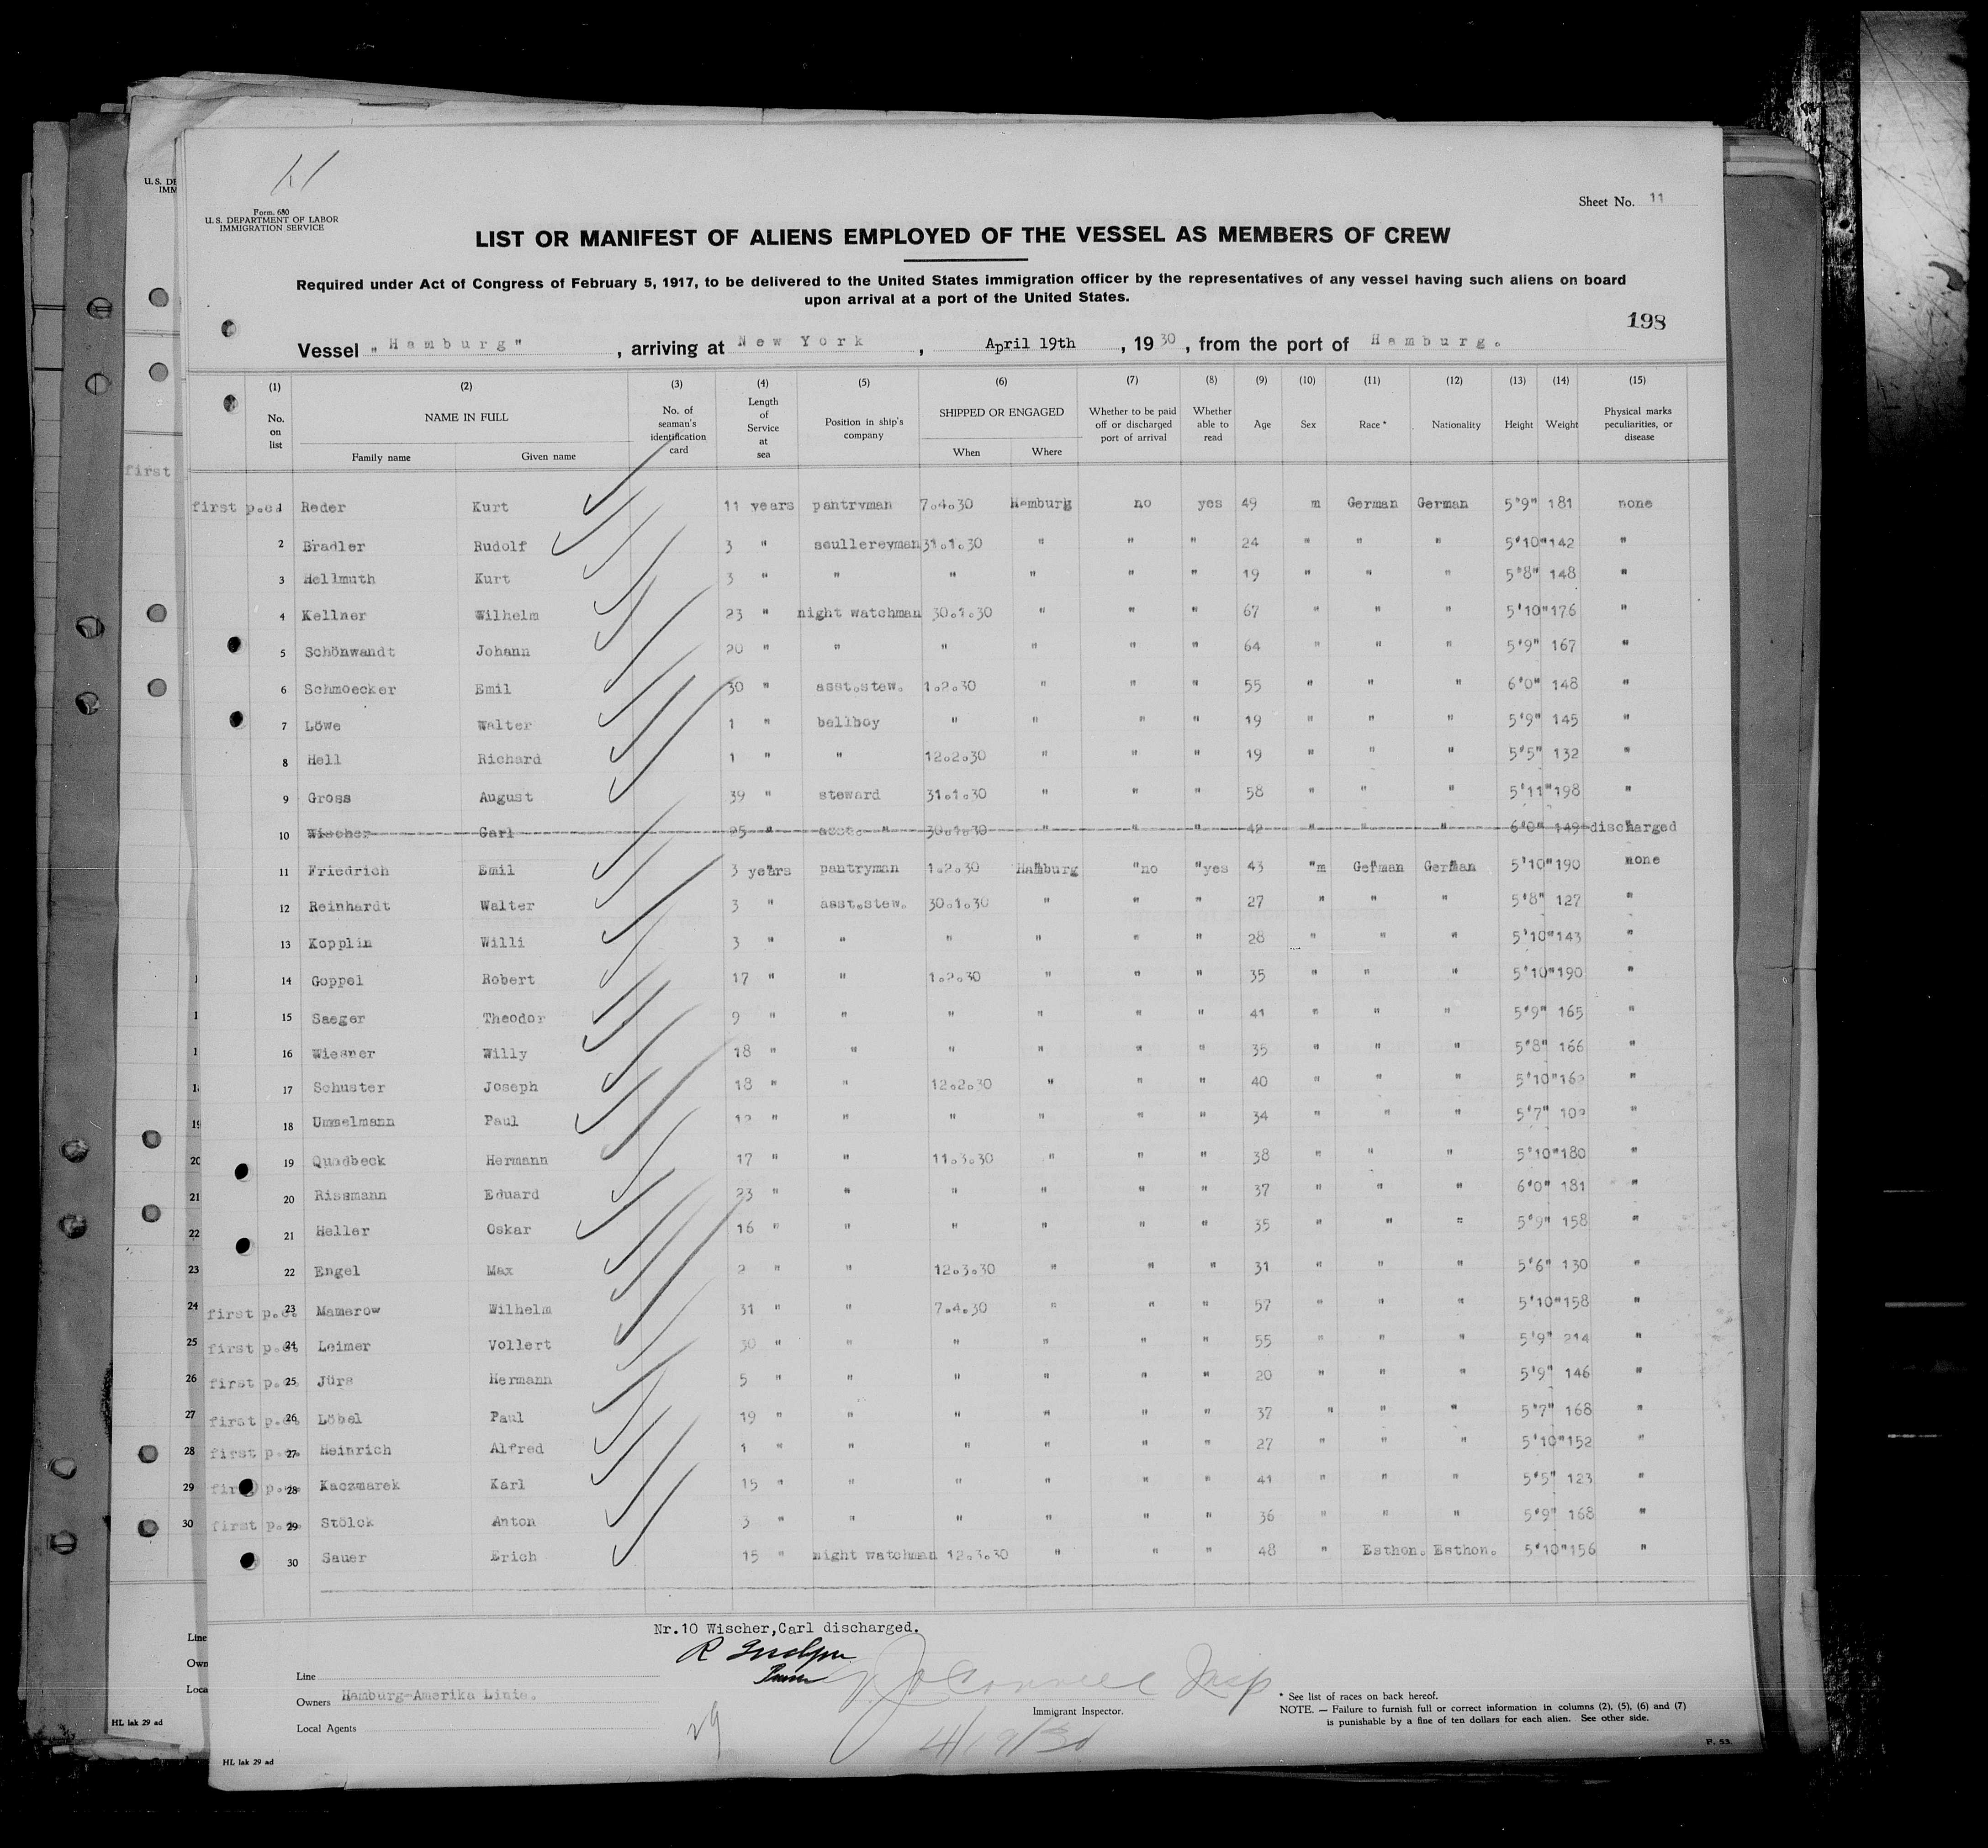 11
Form. 680
U. S. DEPARTMENT OF LABOR
IMMIGRATION SERVICE
Sheet No. 11
LIST OR MANIFEST OF ALIENS EMPLOYED OF THE VESSEL AS MEMBERS OF CREW
Required under Act of Congress of February 5, 1917, to be delivered to the United States immigration officer by the representatives of any vessel having such aliens on board
upon arrival at a port of the United States.
198
Vessel „Hamburg", arriving at New York, April 19th, 1930, from the port of Hamburg.
(1) (2) (3) (4) (5) (6) (7) (8) (9) (10) (11) (12) (13) (14) (15)
No. on list NAME IN FULL Family name Given name No. of seaman's identification card Length of Service at sea Position in ship's company SHIPPED OR ENGAGED When Where Whether to be paid off or discharged port of arrival Whether able to read Age Sex Race * Nationality Height Weight Physical marks peculiarities, or disease
first p.c. 1 Reder Kurt 11 years pantryman 7.4.30 Hamburg no yes 49 m German German 5'9" 181 none
2 Bradler Rudolf 3 " scullereyman 31.1.30 " " " 24 " " " 5'10" 142 "
3 Hellmuth Kurt 3 " " " " " " 19 " " " 5'8" 148 "
4 Kellner Wilhelm 23 " night watchman 30.1.30 " " " 67 " " " 5'10" 176 "
5 Schönwandt Johann 20 " " " " " " 64 " " " 5'9" 167 "
6 Schmoecker Emil 30 " asst.stew. 1.2.30 " " " 55 " " " 6'0" 148 "
7 Löwe Walter 1 " bellboy " " " " 19 " " " 5'9" 145 "
8 Hell Richard 1 " " 12.2.30 " " " 19 " " " 5'5" 132 "
9 Gross August 39 " steward 31.1.30 " " " 58 " " " 5'11" 198 "
10 Wischer Carl 25 " asst. " 30.1.30 " " " 42 " " " 6'0" 149 discharged
11 Friedrich Emil 3 years pantryman 1.2.30 Hamburg "no "yes 43 "m German German 5'10" 190 none
12 Reinhardt Walter 3 " asst.stew. 30.1.30 " " " 27 " " " 5'8" 127 "
13 Kopplin Willi 3 " " " " " " 28 " " " 5'10" 143 "
14 Goppel Robert 17 " " 1.2.30 " " " 35 " " " 5'10" 190 "
15 Saeger Theodor 9 " " " " " " 41 " " " 5'9" 165 "
16 Wiesner Willy 18 " " " " " " 35 " " " 5'8" 166 "
17 Schuster Joseph 18 " " 12.2.30 " " " 40 " " " 5'10" 162 "
18 Ummelmann Paul 12 " " " " " " 34 " " " 5'7" 102 "
19 Quadbeck Hermann 17 " " 11.3.30 " " " 38 " " " 5'10" 180 "
20 Rissmann Eduard 23 " " " " " " 37 " " " 6'0" 181 "
21 Heller Oskar 16 " " " " " " 35 " " " 5'9" 158 "
22 Engel Max 2 " " 12.3.30 " " " 31 " " " 5'6" 130 "
first p.c. 23 Mamerow Wilhelm 31 " " 7.4.30 " " " 57 " " " 5'10" 158 "
first p.c. 24 Leimer Vollert 30 " " " " " " 55 " " " 5'9" 214 "
first p.c. 25 Jürs Hermann 5 " " " " " " 20 " " " 5'9" 146 "
first p.c. 26 Löbel Paul 19 " " " " " " 37 " " " 5'7" 168 "
first p.c. 27 Heinrich Alfred 1 " " " " " " 27 " " " 5'10" 152 "
first p.c. 28 Kaczmarek Karl 15 " " " " " " 41 " " " 5'5" 123 "
first p.c. 29 Stölck Anton 3 " " " " " " 36 " " " 5'9" 168 "
30 Sauer Erich 15 " night watchman 12.3.30 " " " 48 " Esthon. Esthon. 5'10" 156 "
Nr.10 Wischer,Carl discharged.
Line
Owners Hamburg-Amerika Linie.
Local Agents
29
Immigrant Inspector.
4/19/30
* See list of races on back hereof.
NOTE. — Failure to furnish full or correct information in columns (2), (5), (6) and (7)
is punishable by a fine of ten dollars for each alien. See other side.
HL lak 29 ad
P. 53.
HL lak 29 ad